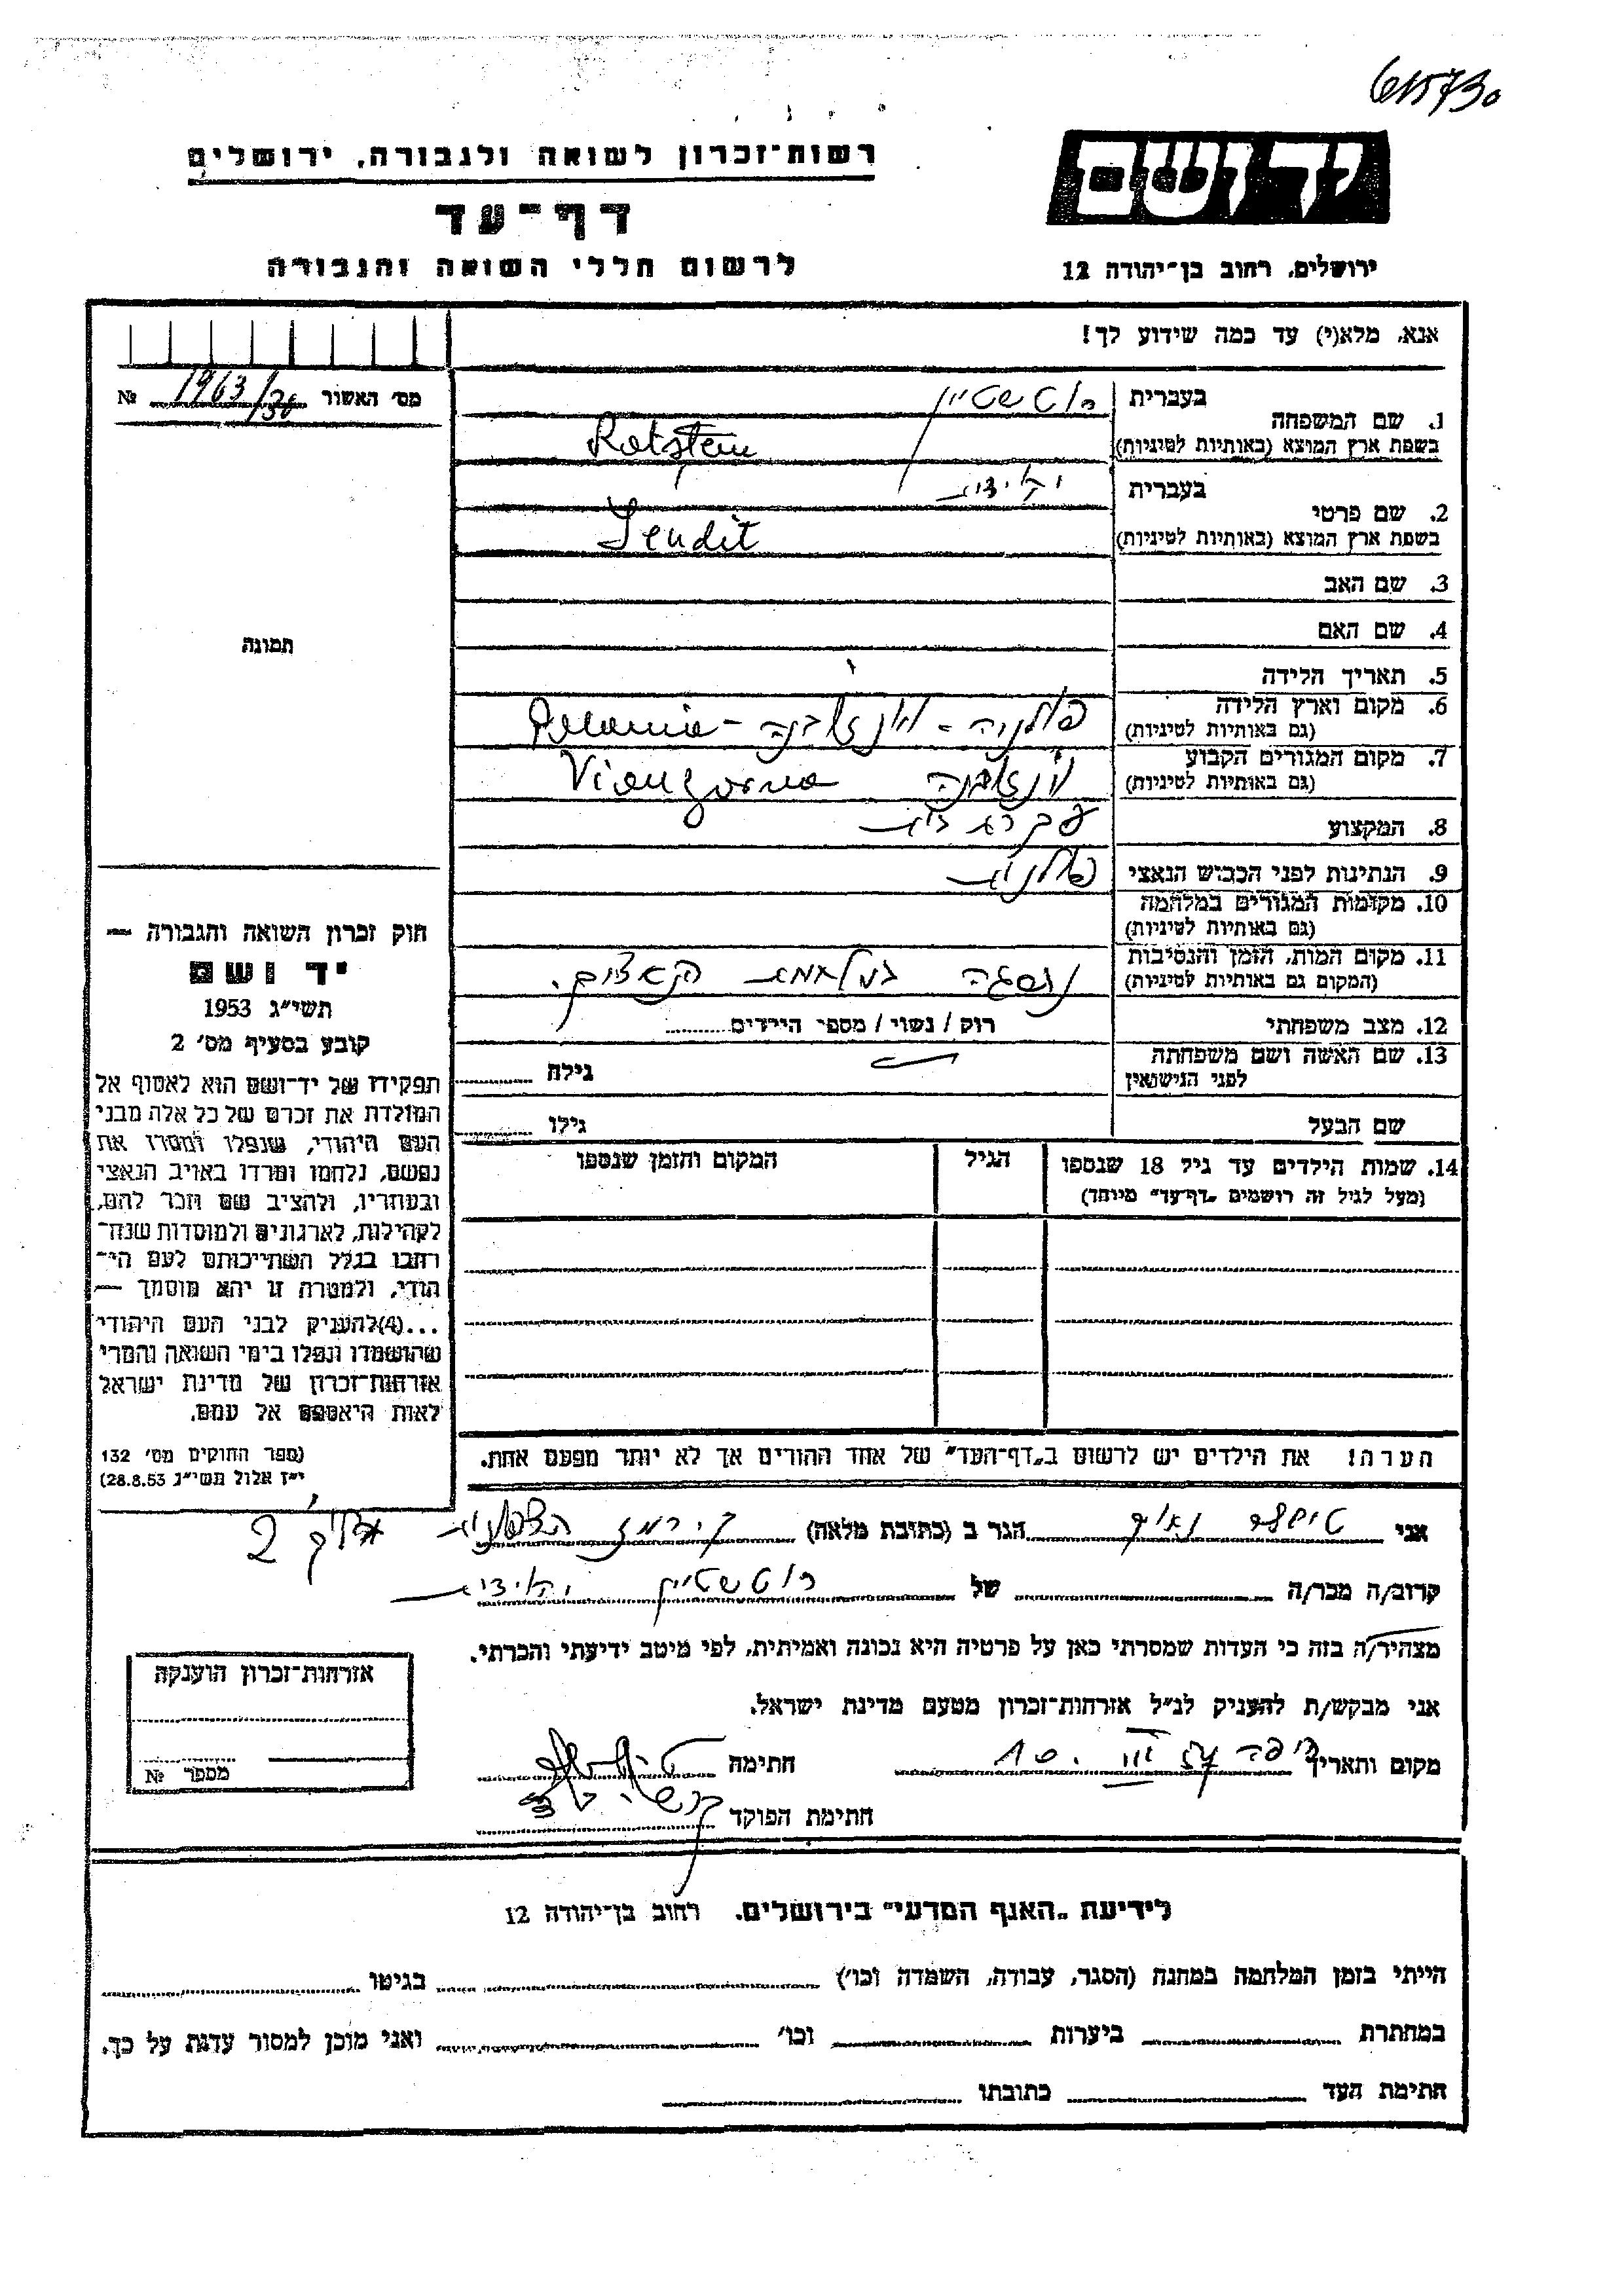 615730
רשות־זכרון לשואה ולגבורה, ירושלים
יד ושם
דף־עד
לרשום חללי השואה והגבורה
ירושלים, רחוב בן־יהודה 12
אנא, מלא(י) עד כמה שידוע לך!
מס׳ האשור 1963/36 №
1. שם המשפחה
בעברית רוטשטיין
בשפת ארץ המוצא (באותיות לטיניות) Rotstein
2. שם פרטי
בעברית יהודית
בשפת ארץ המוצא (באותיות לטיניות) Jeudit
3. שם האב
4. שם האם
תמונה
5. תאריך הלידה
6. מקום וארץ הלידה
(גם באותיות לטיניות) פולניה -
7. מקום המגורים הקבוע
(גם באותיות לטיניות)
8. המקצוע
9. הנתינות לפני הכבוש הנאצי פולנית
10. מקומות המגורים במלחמה
(גם באותיות לטיניות)
11. מקום המות, הזמן והנסיבות
(המקום גם באותיות לטיניות) נספתה במלחמת הנאצים.
12. מצב משפחתי
רוק / נשוי / מספר הילדים
13. שם האשה ושם משפחתה
לפני הנישואין
גילה
שם הבעל
גילו
14. שמות הילדים עד גיל 18 שנספו
(מעל לגיל זה רושמים „דף־עד״ מיוחד)
הגיל
המקום והזמן שנספו
חוק זכרון השואה והגבורה —
יד ושם
תשי״ג 1953
קובע בסעיף מס׳ 2
תפקידו של יד־ושם הוא לאסוף אל
המולדת את זכרם של כל אלה מבני
העם היהודי, שנפלו ומסרו את
נפשם, נלחמו ומרדו באויב הנאצי
ובעוזריו, ולהציב שם וזכר להם,
לקהילות, לארגונים ולמוסדות שנח־
רבו בגלל השתייכותם לעם הי־
הודי, ולמטרה זו יהא מוסמך —
...(4)להעניק לבני העם היהודי
שהושמדו ונפלו בימי השואה והמרי
אזרחות־זכרון של מדינת ישראל
לאות היאספם אל עמם.
(ספר החוקים מס׳ 132
י״ז אלול תשי״ג 28.8.53)
הערה! את הילדים יש לרשום ב„דף־העד״ של אחד ההורים אך לא יותר מפעם אחת.
אני הגר ב (כתובת מלאה) 2
קרוב/ה מכר/ה של רוטשטיין יהודית
מצהיר/ה בזה כי העדות שמסרתי כאן על פרטיה היא נכונה ואמיתית, לפי מיטב ידיעתי והכרתי.
אני מבקש/ת להעניק לנ״ל אזרחות־זכרון מטעם מדינת ישראל.
מקום ותאריך חיפה 10. III חתימה
חתימת הפוקד
אזרחות־זכרון הוענקה
מספר №
לידיעת „האגף המדעי״ בירושלים, רחוב בן־יהודה 12
הייתי בזמן המלחמה במחנה (הסגר, עבודה, השמדה וכו׳) בגיטו
במחתרת ביערות וכו׳ ואני מוכן למסור עדות על כך.
חתימת העד כתובתו